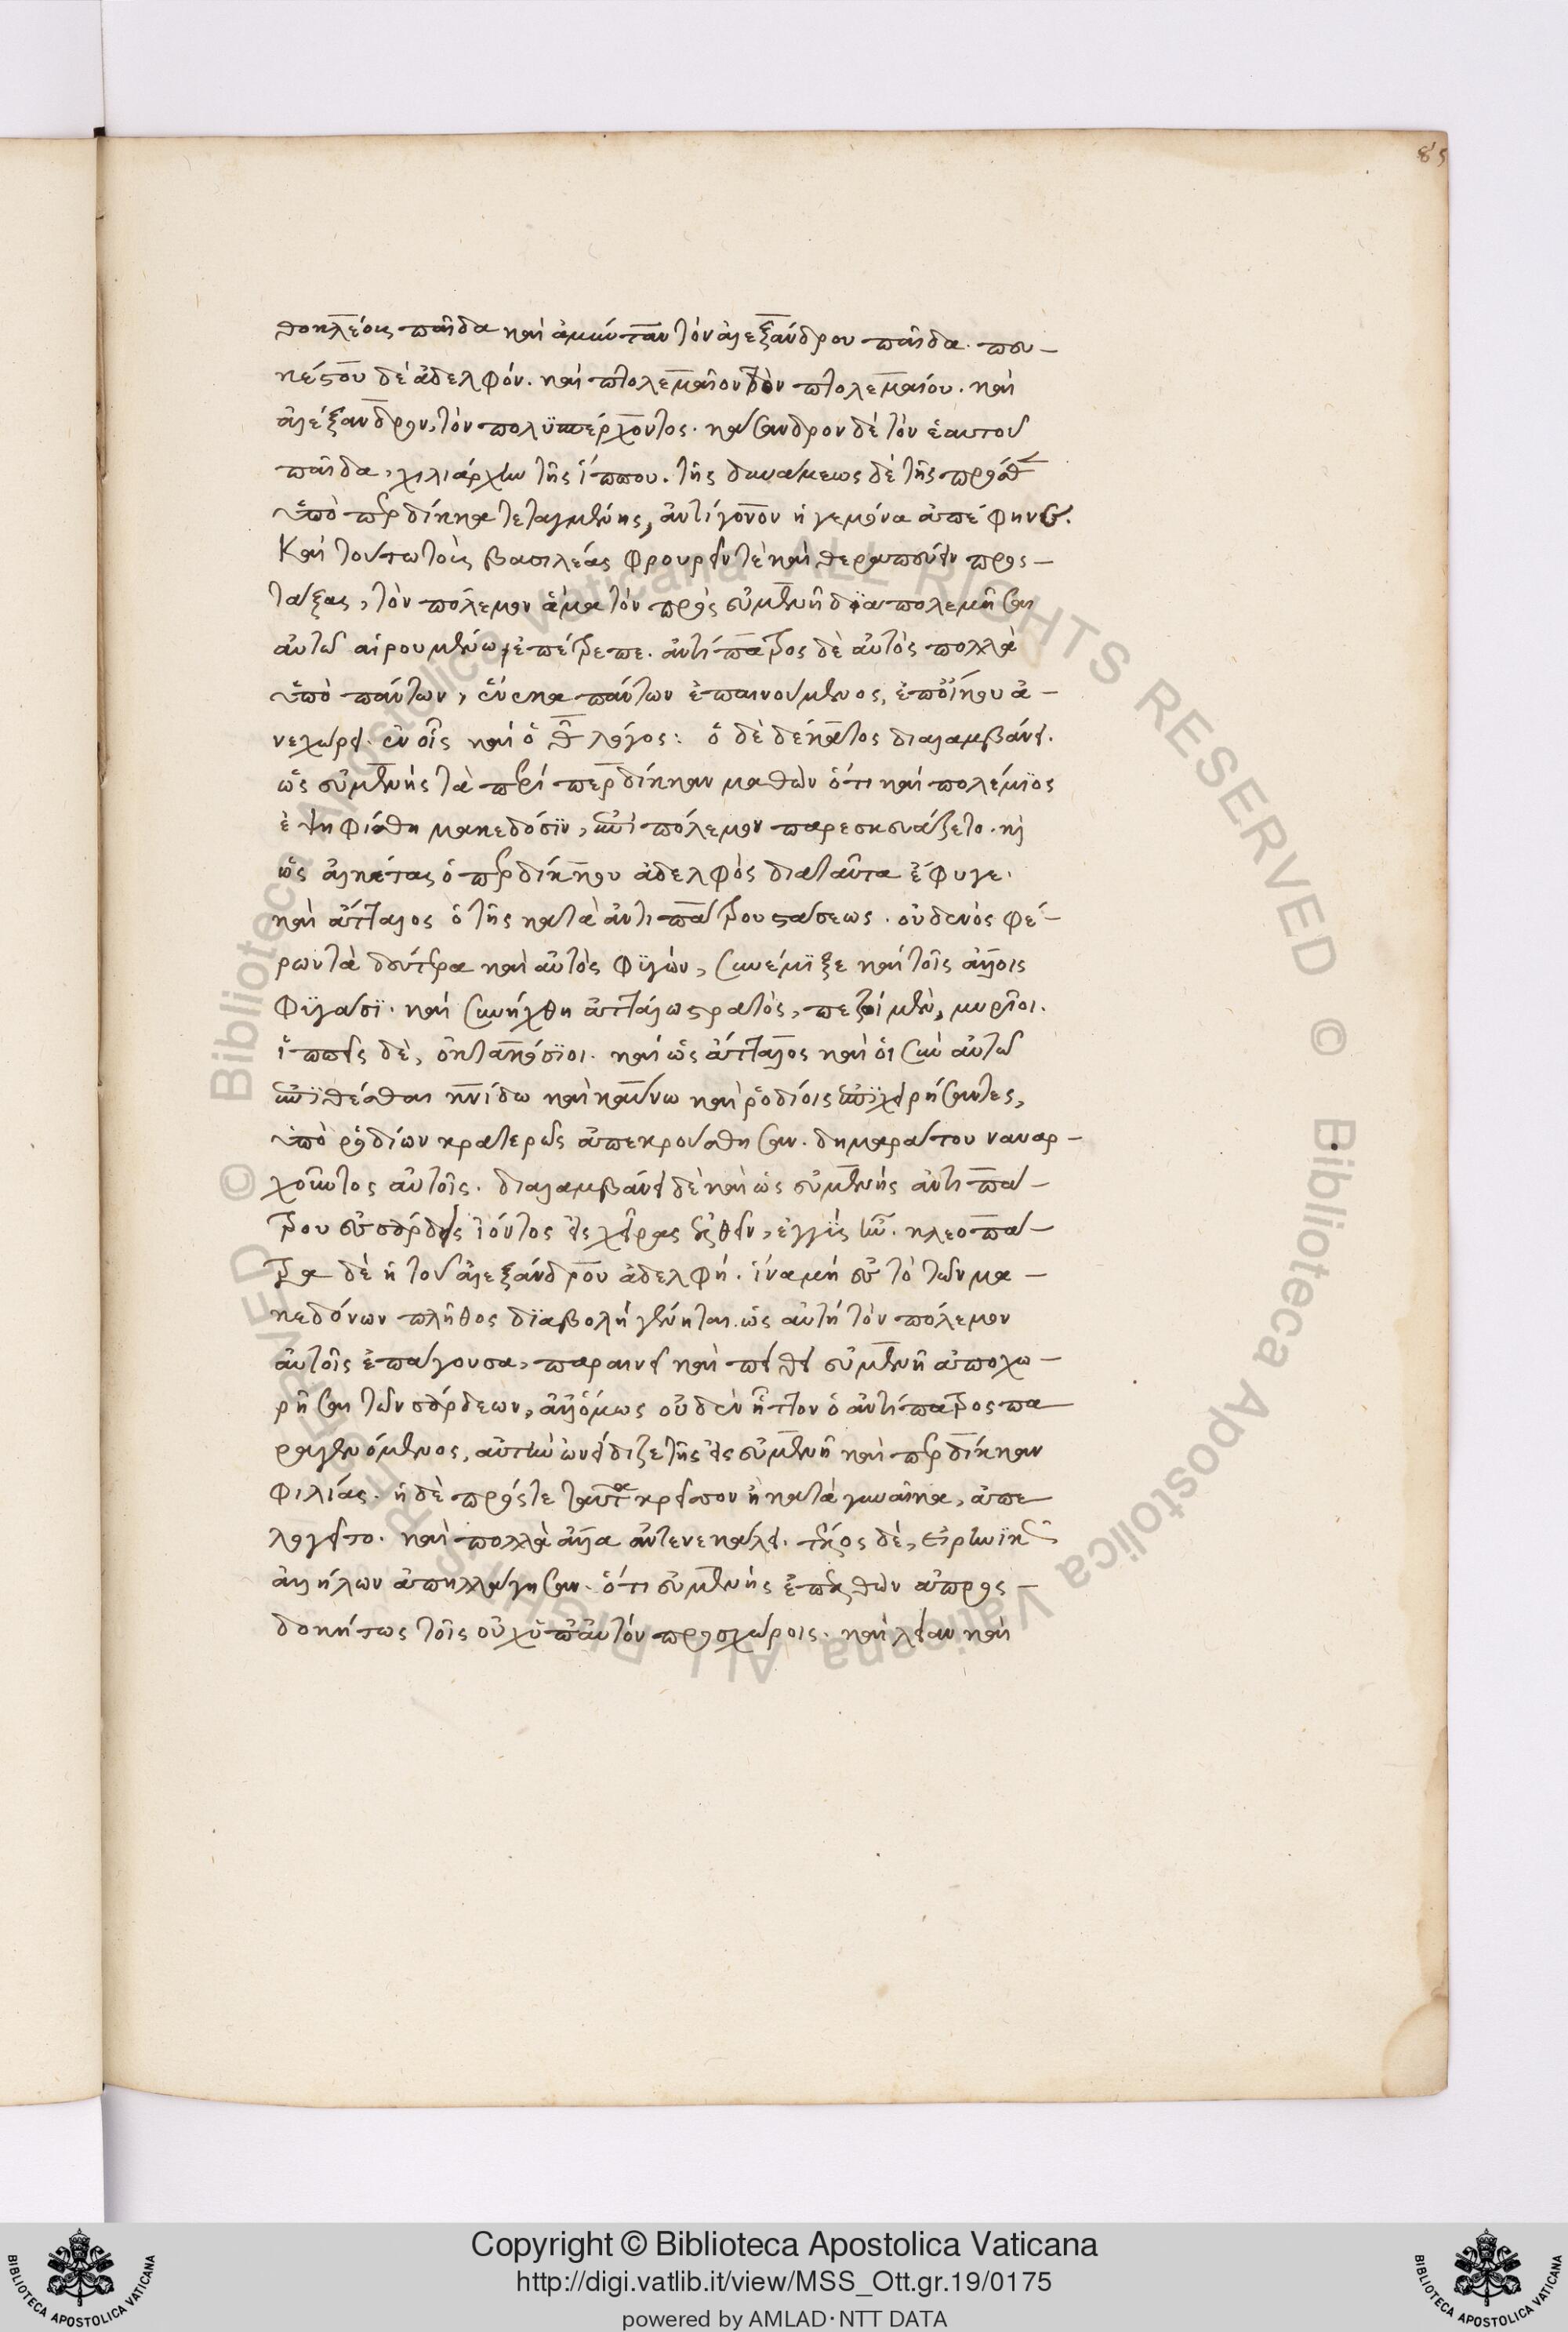 85
θοκλέους παῖδα καὶ ἀμύνταν τὸν ἀλεξάνδρου παῖδα. πευ-
κέστου δὲ ἀδελφόν. καὶ πτολεμαῖον τὸν πτολεμαίου. καὶ
ἀλέξανδρον, τὸν πολυπέρχοντος. κάσανδρον δὲ τὸν ἑαυτοῦ
παῖδα, χιλιάρχην τῆς ἵππου. τῆς δυνάμεως δὲ τῆς πρόσθεν
ὑπὸ περδίκκα τεταγμένης, ἀντίγονον ἡγεμόνα ἀπέφηνε.
Καὶ τούτω τοὺς βασιλέας φρουρεῖν τὲ καὶ θεραπεύειν προσ-
τάξας, τὸν πόλεμον ἅμα τὸν πρὸς εὐμενῆ διαπολεμῆσαι
αὐτῶ αἱρουμένω, ἐπέτρεπε. ἀντίπατρος δὲ αὐτὸς πολλὰ
ὑπὸ πάντων, ἕνεκα πάντων ἐπαινούμενος, ἐπ' οἴκου ἀ-
νεχώρει. ἐν οἷς καὶ ὁ θ λόγος: ὁ δὲ δέκατος διαλαμβάνει.
ὡς εὐμένης τὰ περὶ περδίκκαν μαθὼν ὅτι καὶ πολέμιος
ἐψηφίσθη μακεδόσιν, ἐπὶ πόλεμον παρεσκευάζετο. κὶ
ὡς ἀλκέτας ὁ περδίκκου ἀδελφὸς διαταῦτα ἔφυγε.
καὶ ἄτταλος ὁ τῆς κατὰ ἀντιπάτρου στάσεως. οὐδενὸς φέ-
ρων τὰ δεύτερα καὶ αὐτὸς φυγὼν, συνέμιξε καὶ τοῖς ἄλλοις
φυγάσι. καὶ συνήχθη ἀττάλω στρατὸς, πεζοὶ μὲν, μυρίοι.
ἱππεῖς δὲ, ὀκτακόσιοι. καὶ ὡς ἄτταλος καὶ οἱ σὺν αὐτῶ
ἐπιθέσθαι κνίδω καὶ καύνω καὶ ῥοδίοις ἐπιχειρήσαντες,
ὑπὸ ῥοδίων κρατερῶς ἀπεκρούσθησαν. δημαράτου ναυαρ-
χοῦντος αὐτοῖς. διαλαμβάνει δὲ καὶ ὡς εὐμένης ἀντιπά-
τρου εὖ σάρδεις ἰόντος εἰς χεῖρας ἐλθεῖν, ἐγγὺς ἦν. κλεοπά-
τρα δὲ ἡ τοῦ ἀλεξάνδρου ἀδελφή. ἵνα μὴ εὖ τὸ τῶν μα-
κεδόνων πλῆθος διαβολὴ γένηται. ὡς αὐτὴ τὸν πόλεμον
αὐτοῖς ἐπάγουσα, παραινεῖ καὶ πείθει εὐμενῆ ἀποχω-
ρῆσαι τῶν σάρδεων, ἀλλ' ὅμως οὐδὲν ἧττον ὁ ἀντίπατρος πα
ραγενόμενος, αὐτὴν ὠνείδιζε τῆς εἰς εὐμενῆ καὶ περδίκκαν
φιλίας. ἡ δὲ πρός τε ταῦτα κρεῖττον ἢ κατὰ γυναῖκα, ἀπε
λογεῖτο. καὶ πολλὰ ἄλλα ἀντενεκάλει. τέλος δὲ, εἰρηνικῶς
ἀλλήλων ἀπηλλάγησαν. ὅτι εὐμένης ἐπελθὼν ἀπροσ-
δοκήτως τοῖς οὐχ ὑπ' αὐτὸν προσχώροις. καὶ λείαν καὶ
Copyright © Biblioteca Apostolica Vaticana
http://digi.vatlib.it/view/MSS_Ott.gr.19/0175
powered by AMLAD·NTT DATA